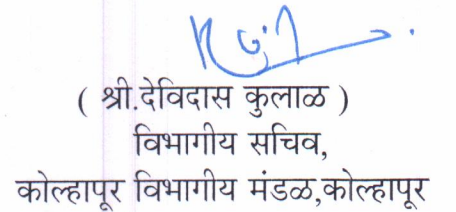 ( श्री.देविदास कुलाळ )
विभागीय सचिव,
कोल्हापूर विभागीय मंडळ,कोल्हापूर